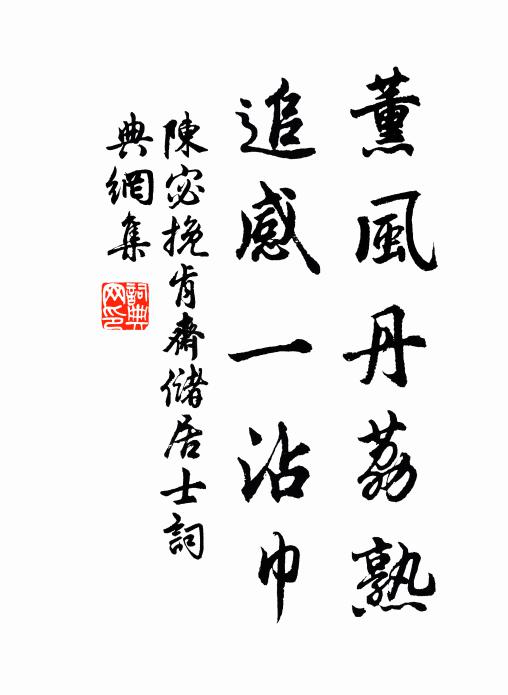 薰風丹荔熟
追感一沾巾
陳宓挽肯齋儲居士詞
典網集
詞典
网印